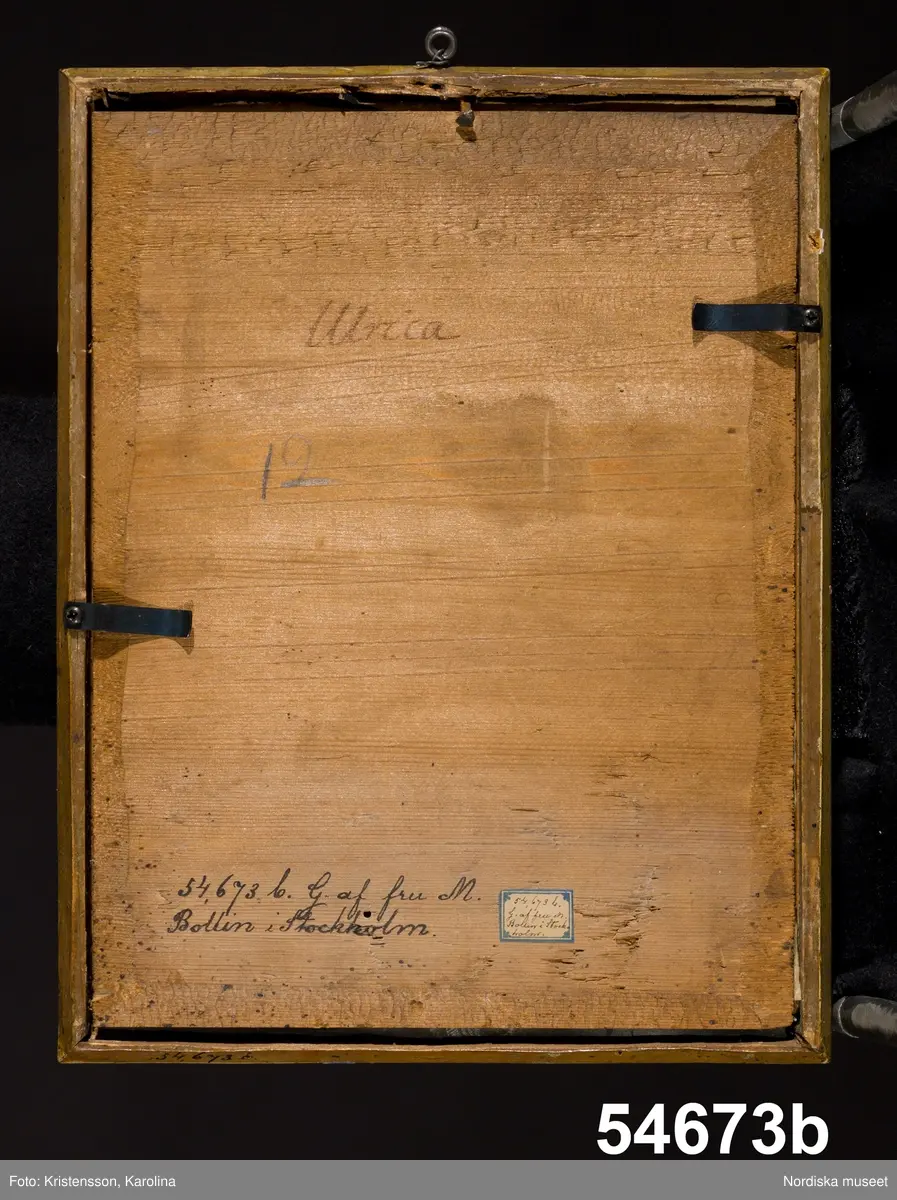 Ulrica
12
54,673. b. G. af fru M.
Bollin i Stockholm.
54,673 b.
G. af fru M.
Bollin i Stock-
holm.
54,673 b
54673b
Foto: Kristensson, Karolina
Nordiska museet